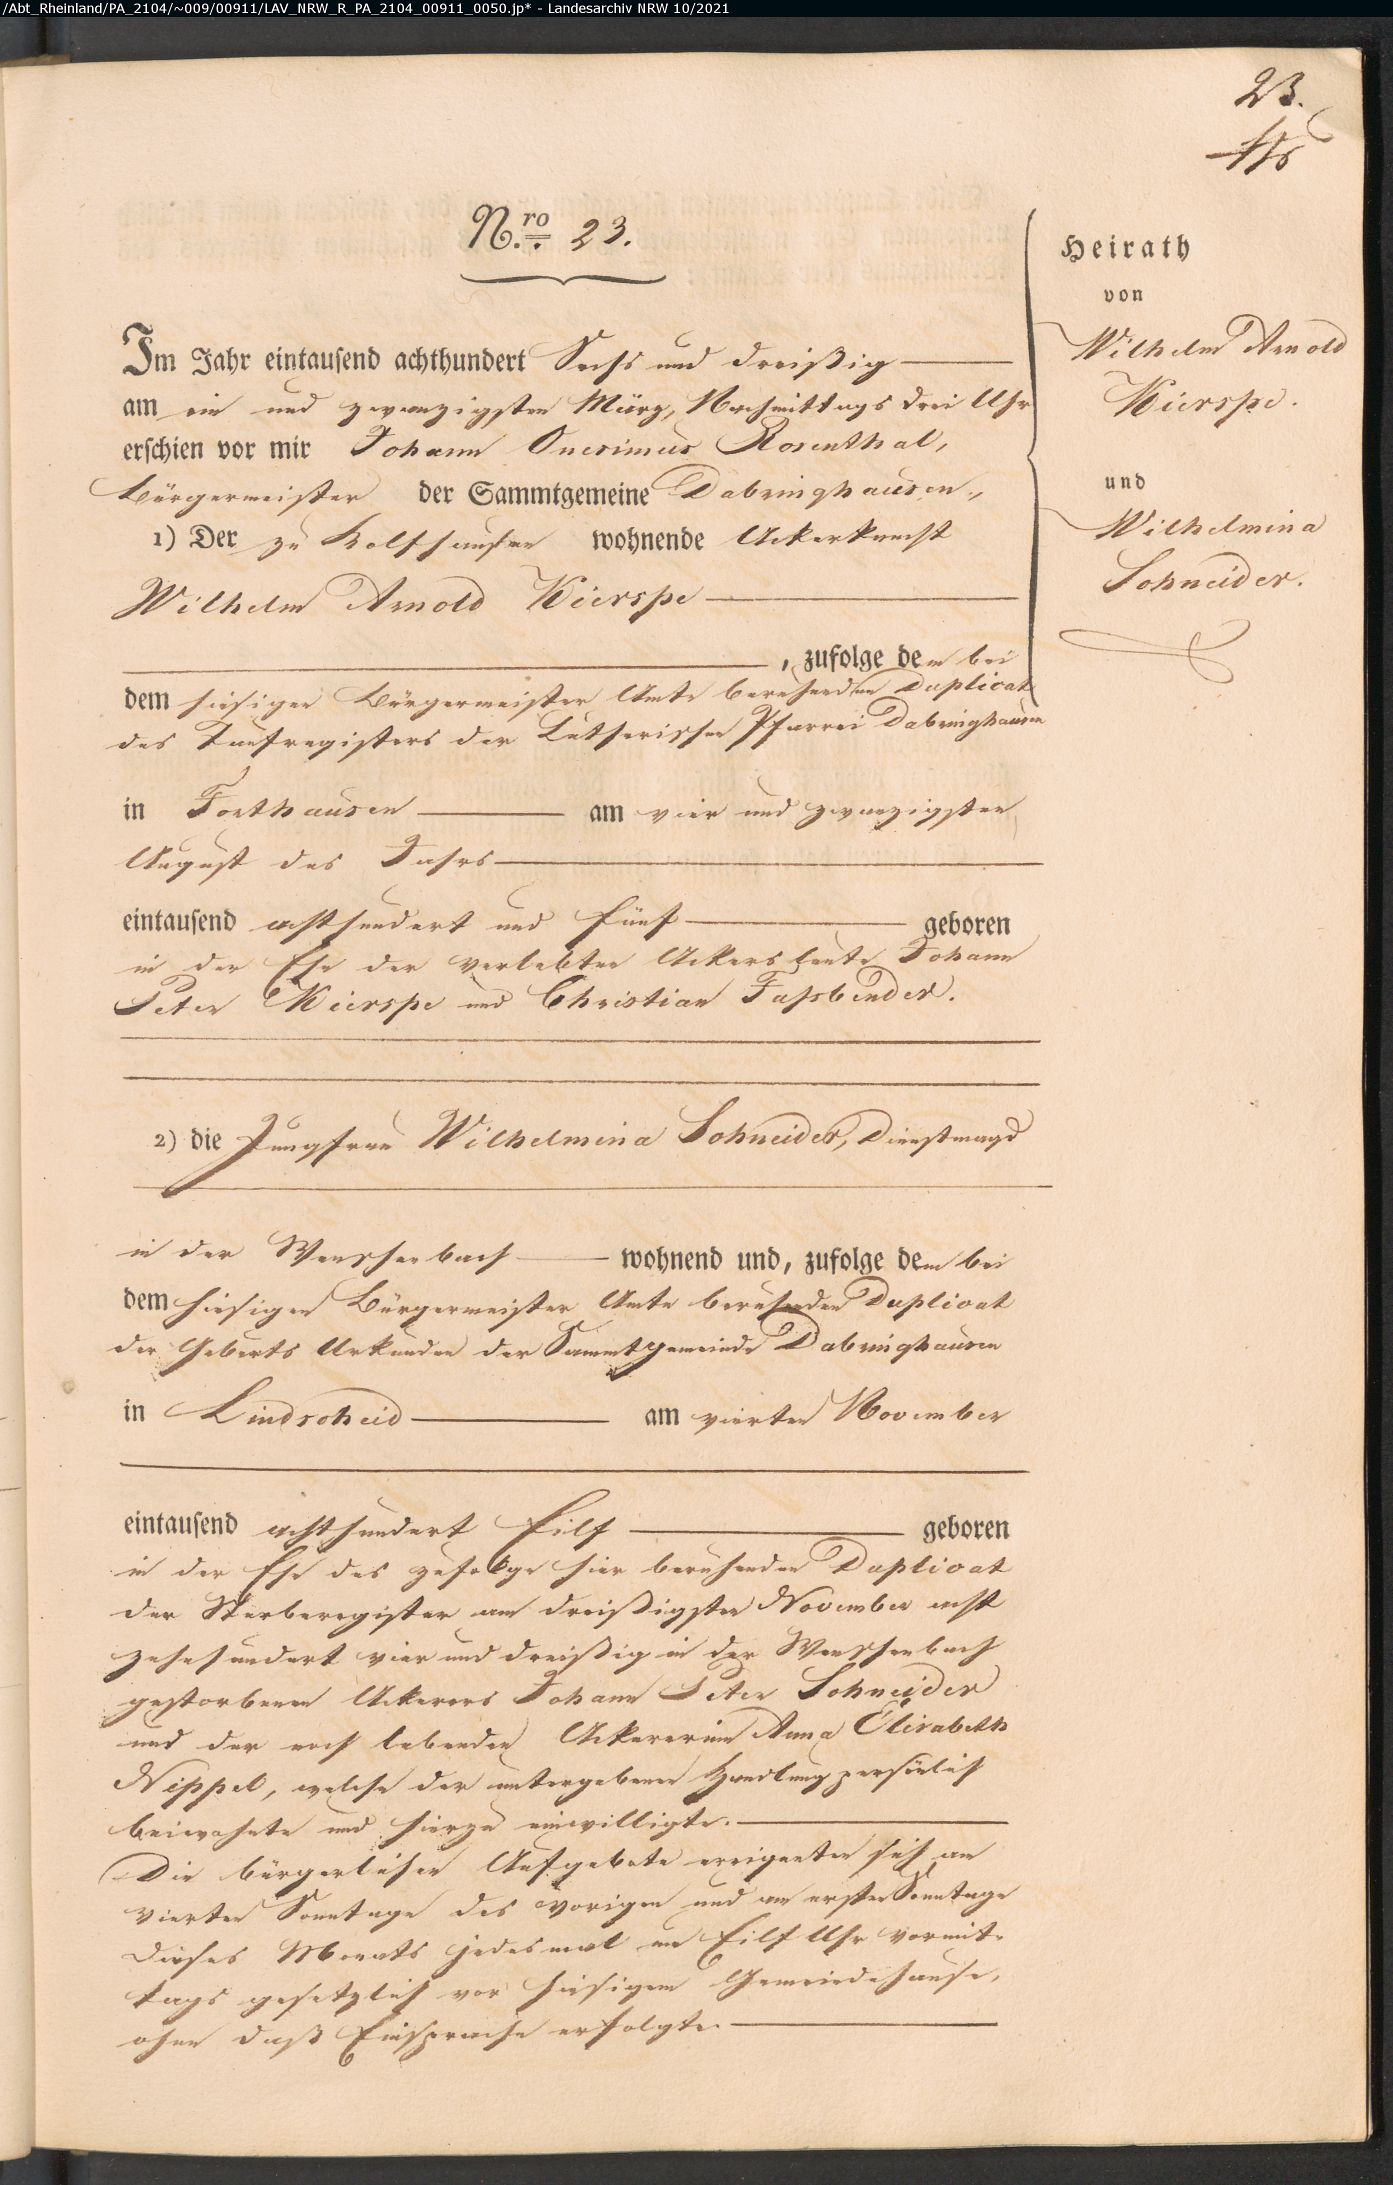 /Abt_Rheinland/PA_2104/~009/00911/LAV_NRW_R_PA_2104_00911_0050.jp* - Landesarchiv NRW 10/2021
23.
N.ro 23.
Heirath
von
Wilhelm Arnold
Kierspe.
und
Wilhelmina
Schneider.
Im Jahr eintausend achthundert Sechs und dreißig
am ein und zwanzigsten März, Nachmittags drei Uhr
erschien vor mir Johann Onesimus Rosenthal,
Bürgermeister der Sammtgemeine Dabringhausen,
1) Der zu wohnende Ackerknecht
Wilhelm Arnold Kierspe
, zufolge dem bei
dem hiesigen Bürgermeister Amte beruhenden Duplicat
des Taufregisters der Lutherischen Pfarrei Dabringhausen
in Forthausen am vier und zwanzigsten
August des Jahrs
eintausend achthundert und fünf geboren
in der Ehe der verlebten Ackersleute Johann
Peter Kierspe und Christian Faßbender.
2) die Jungfrau Wilhelmina Schneider, Dienstmagd
in der wohnend und, zufolge dem bei
dem hiesigen Bürgermeister Amte beruhenden Duplicat
der Geburts Urkunden der Sammtgemeinde Dabringhausen
in Lindscheid am vierten November
eintausend achthundert Eilf geboren
in der Ehe des zufolge hier beruhenden Duplicat
der Sterberegister am dreißigsten November acht
zehnhundert vier und dreißig in der
gestorbenen Ackerers Johann Peter Schneider
und der noch lebenden Ackererinn Anna Elisabeth
Nippel, welche der untergebenen Handlung persönlich
beiwohnte und hierzu einwilligte.
Die bürgerlichen Aufgebote ereigneten sich am
vierten Sonntage des vorigen und am ersten Sonntage
dieses Monats jedesmal um Eilf Uhr vormit-
tags gesetzlich vor hiesigem Gemeindehause,
ohne daß Einsprache erfolgte.